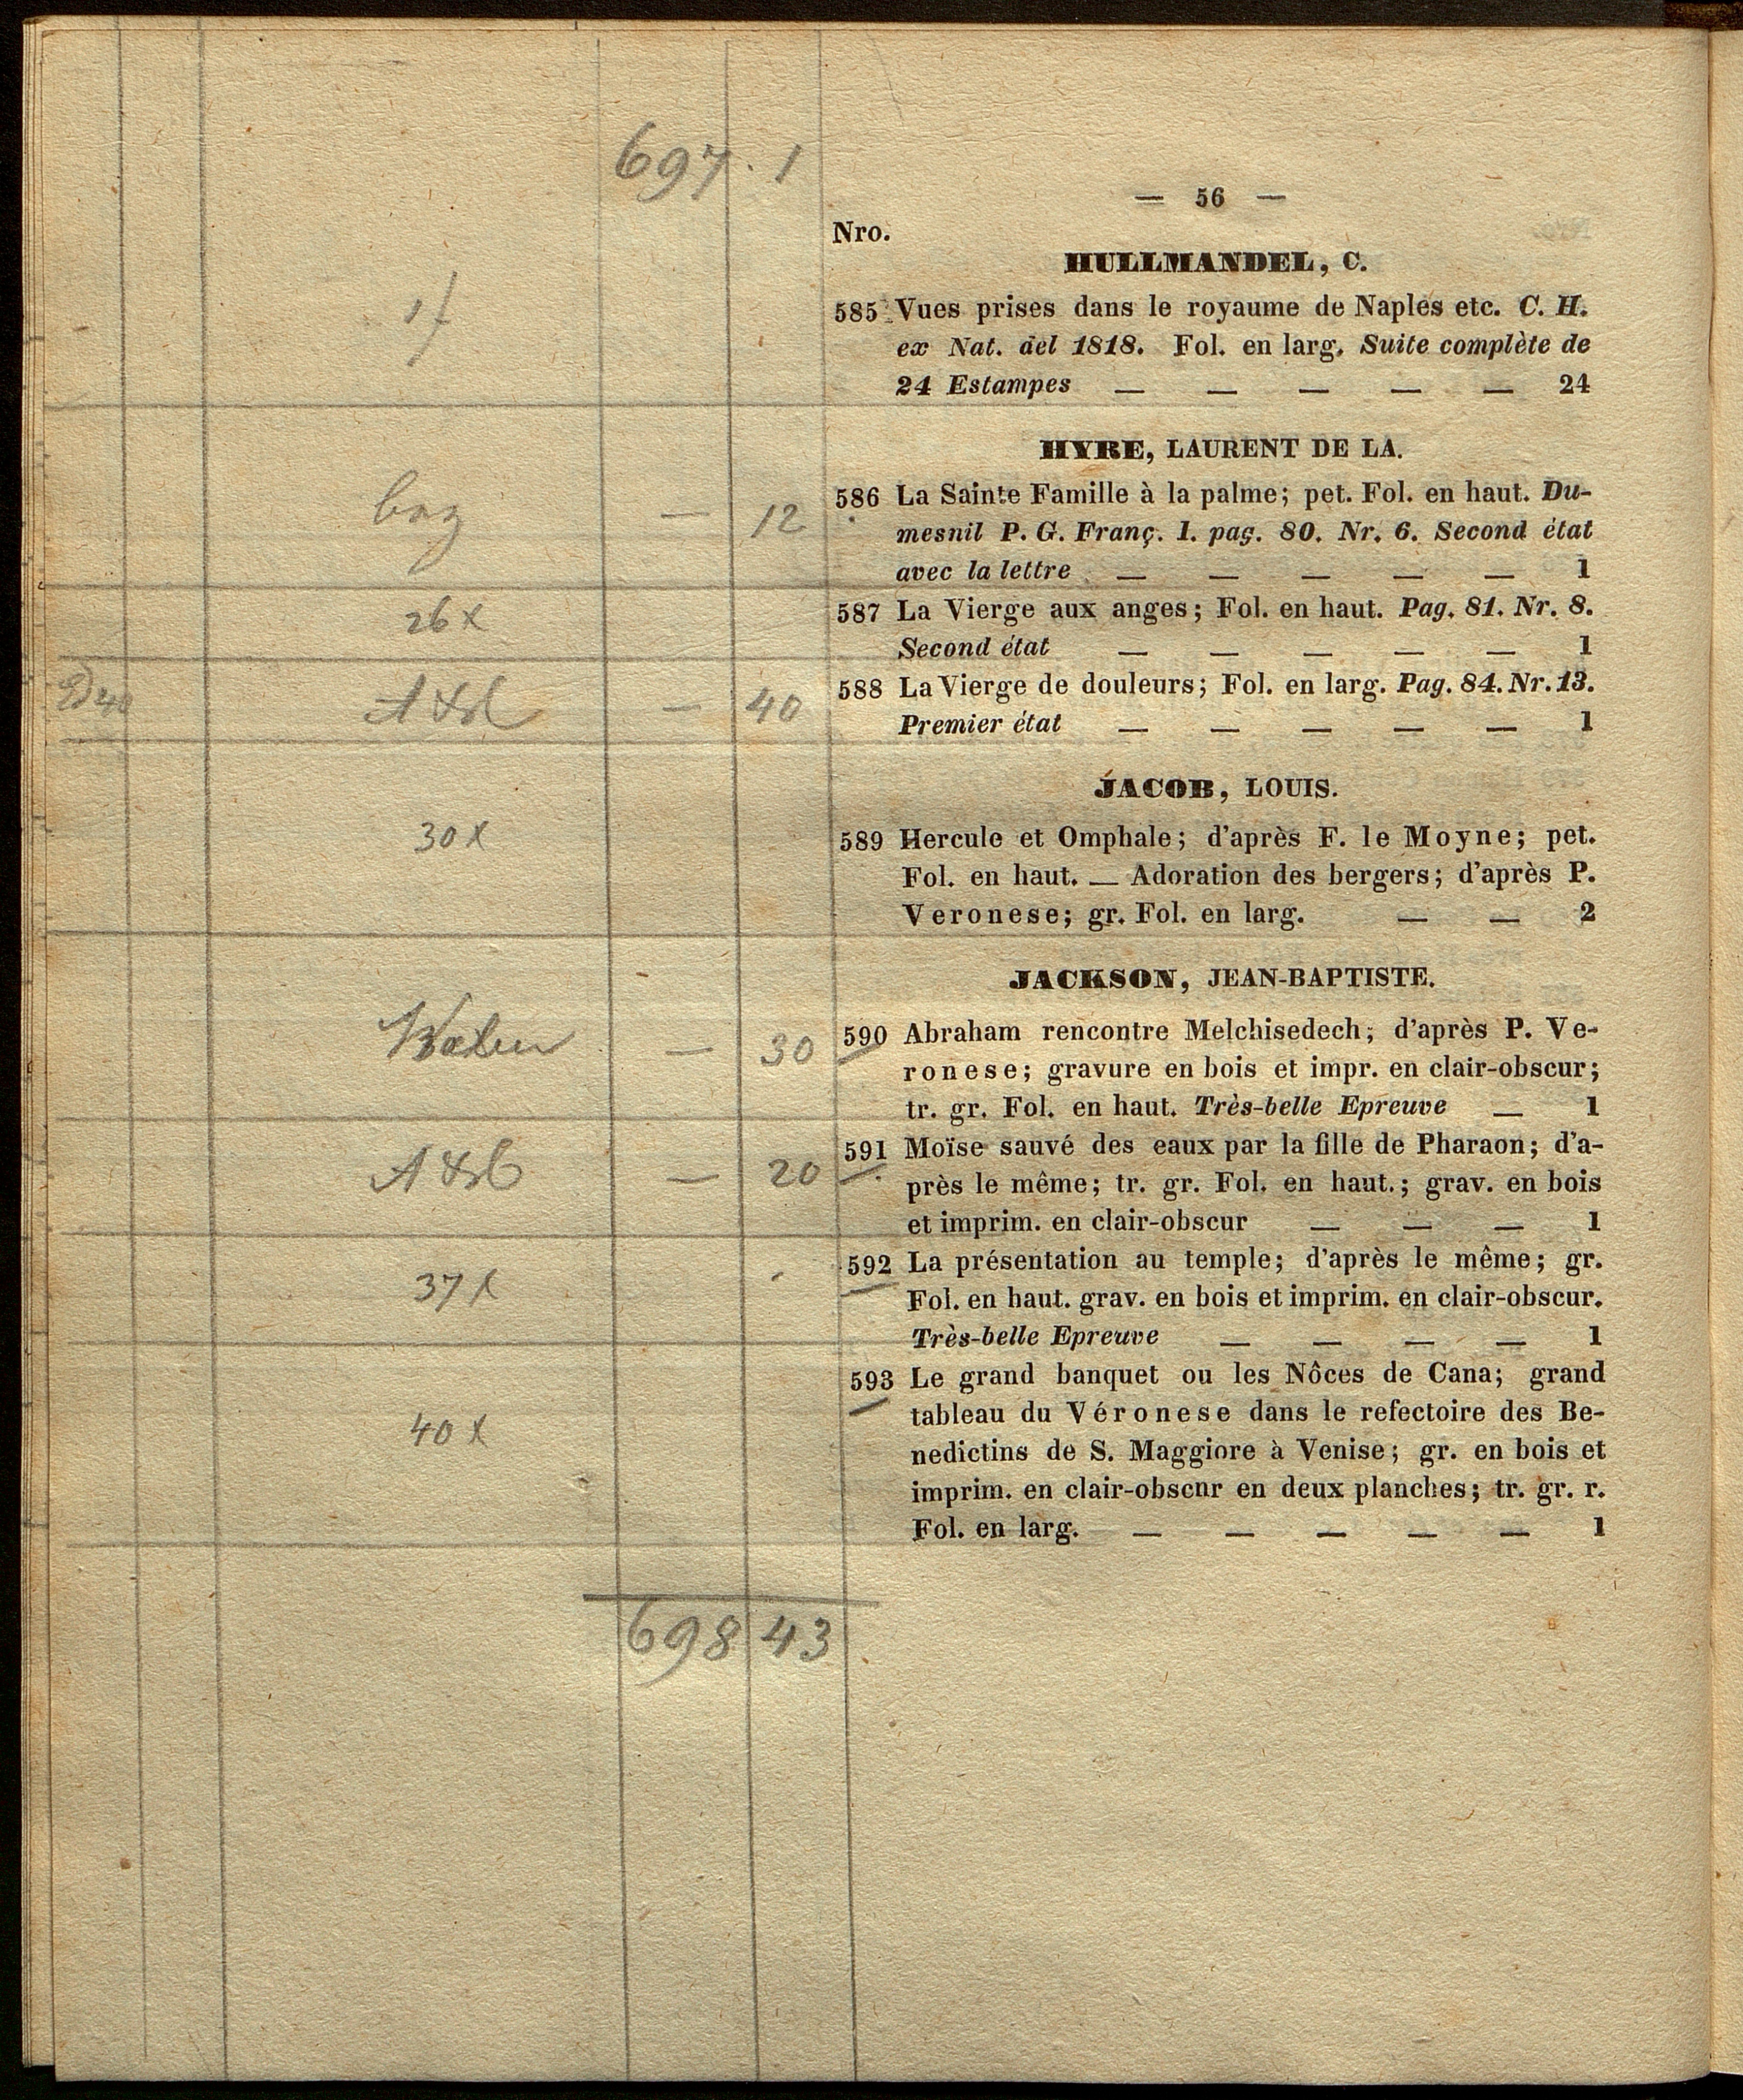 697 . 1
— 56 —
Nro.
HULLMANDEL, C.
1f
585 Vues prises dans le royaume de Naples etc. C. H.
ex Nat. del 1818. Fol. en larg. Suite complète de
24 Estampes — — — — — 24
HYRE, LAURENT DE LA.
— 12 586 La Sainte Famille à la palme; pet. Fol. en haut. Du-
mesnil P. G. Franç. 1. pag. 80. Nr. 6. Second état
avec la lettre — — — — — 1
26x 587 La Vierge aux anges; Fol. en haut. Pag. 81. Nr. 8.
Second état — — — — — 1
— 40 588 La Vierge de douleurs; Fol. en larg. Pag. 84. Nr. 13.
Premier état — — — — — 1
JACOB, LOUIS.
30x 589 Hercule et Omphale; d'après F. le Moyne; pet.
Fol. en haut. — Adoration des bergers; d'après P.
Veronese; gr. Fol. en larg. — — 2
JACKSON, JEAN-BAPTISTE.
— 30 590 Abraham rencontre Melchisedech; d'après P. Ve-
ronese; gravure en bois et impr. en clair-obscur;
tr. gr. Fol. en haut. Très-belle Epreuve — 1
— 20 591 Moïse sauvé des eaux par la fille de Pharaon; d'a-
près le même; tr. gr. Fol. en haut.; grav. en bois
et imprim. en clair-obscur — — — 1
37x 592 La présentation au temple; d'après le même; gr.
Fol. en haut. grav. en bois et imprim. en clair-obscur.
Très-belle Epreuve — — — — 1
593 Le grand banquet ou les Nôces de Cana; grand
tableau du Véronese dans le refectoire des Be-
40x
nedictins de S. Maggiore à Venise; gr. en bois et
imprim. en clair-obscnr en deux planches; tr. gr. r.
Fol. en larg. — — — — — 1
698 43